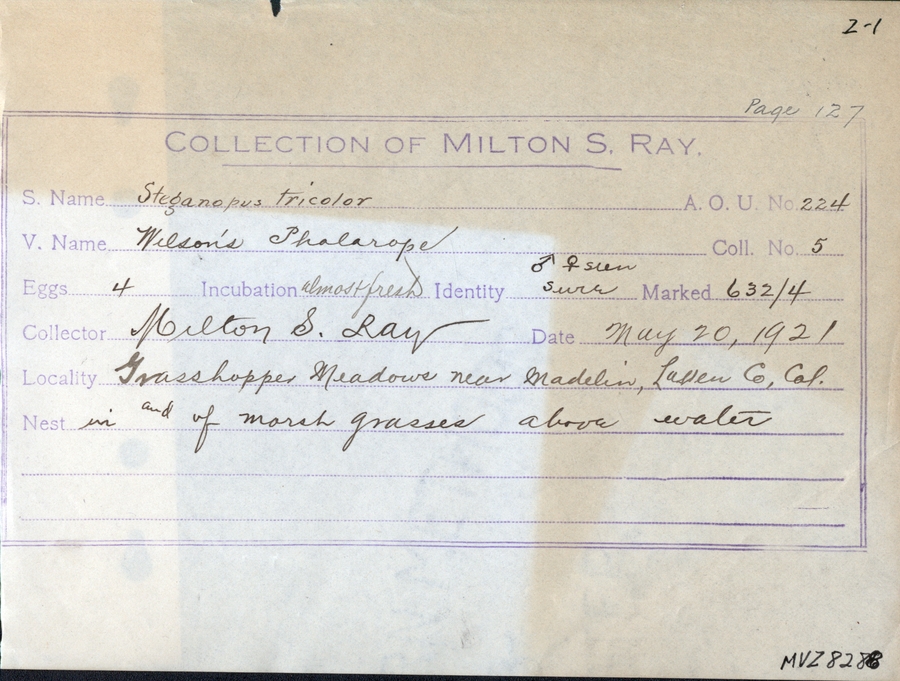 I-1
Page 127
COLLECTION OF MILTON S. RAY.
S. Name Steganopus tricolor A. O. U. No. 224
V. Name Wilson's Phalarope Coll. No. 5
♂ ♀ seen
Eggs 4 Incubation almost fresh Identity sure Marked 632/4
Collector Milton S. Ray Date May 20, 1921
Locality Grasshopper Meadows near Madelin, Lassen Co, Cal.
Nest in and of marsh grasses above water
MVZ 828